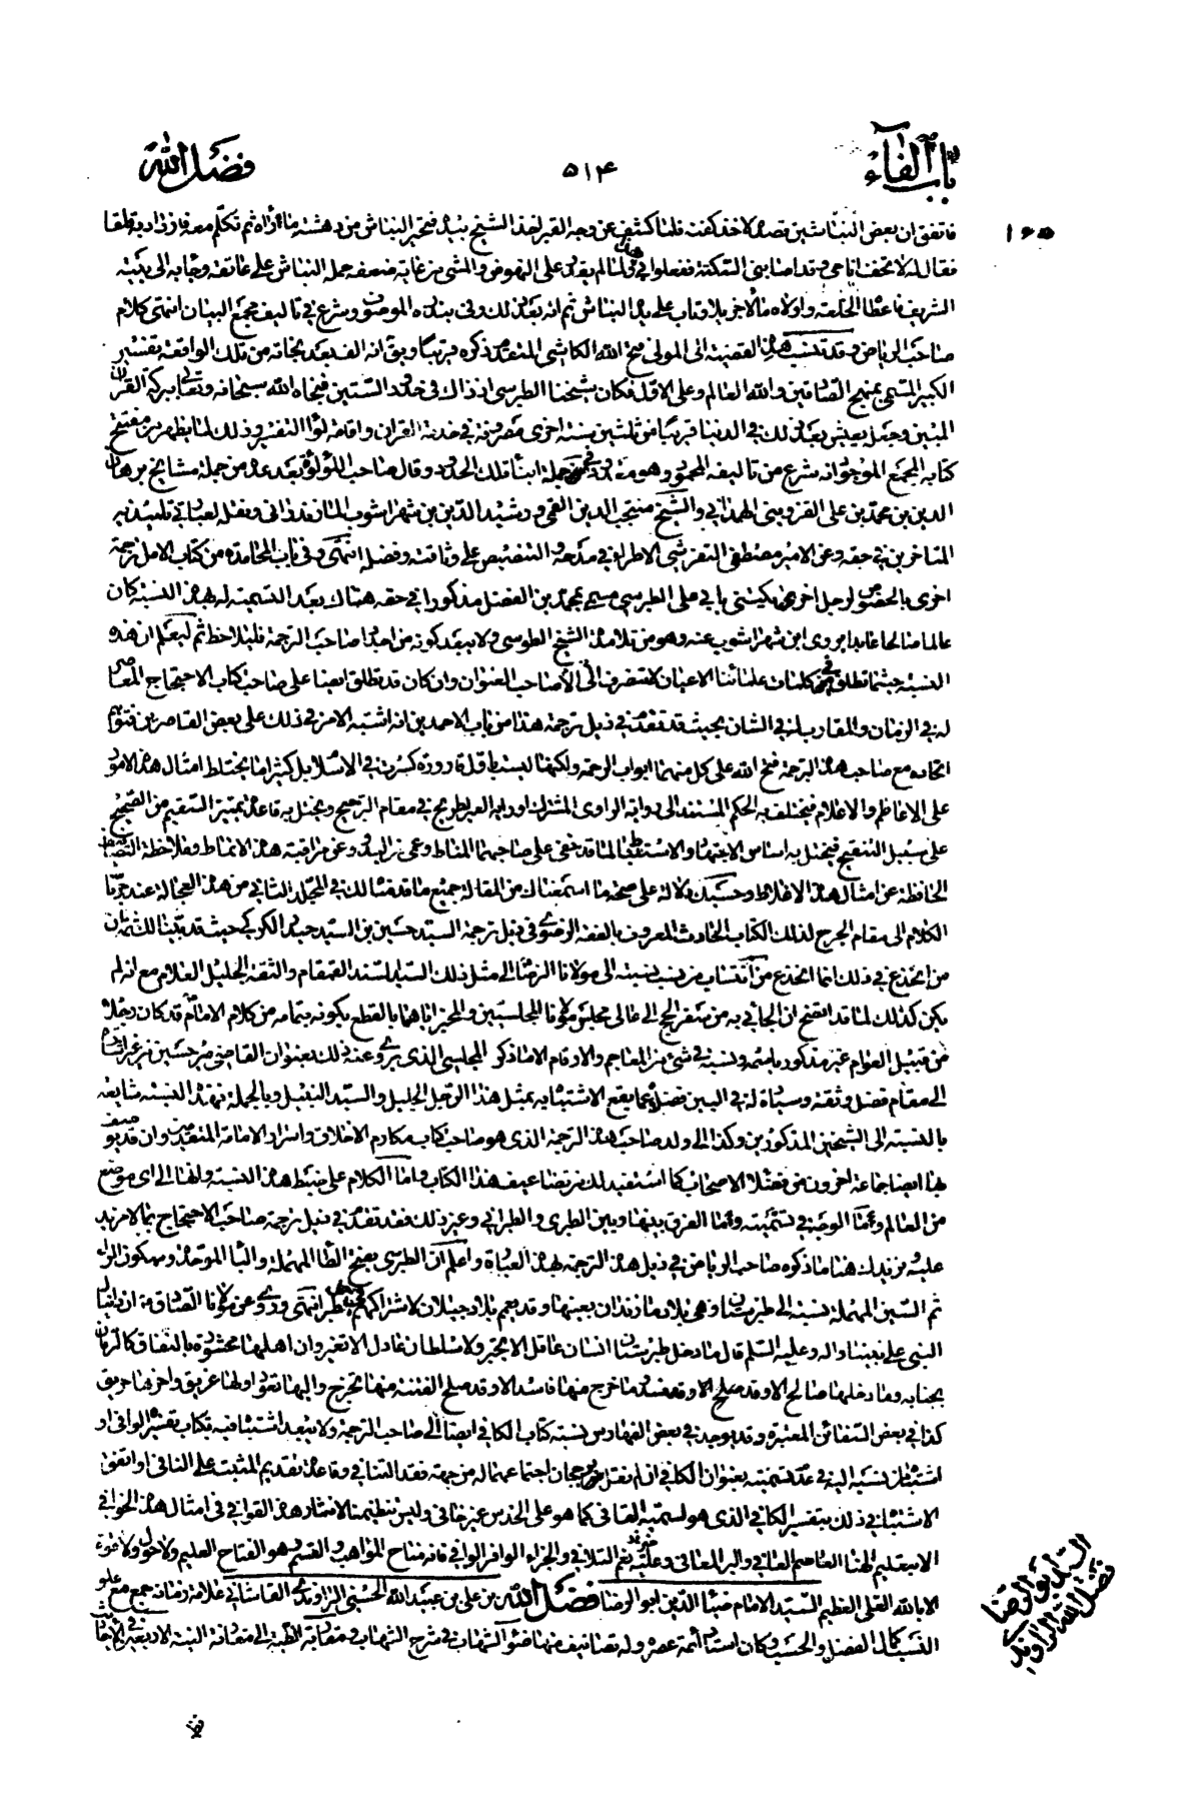 باب الفاء
۵۱۴
فضل الله
۱۶۵
فاتفق ان بعض النباشين قصده لاخذ كفنه فلما كشف عن وجه القبر اخذ الشيخ بيده فتحير النباش من دهشة ما رآه ثم تكلم معه فازداد به قلقا
فقال له لا تخف انا حي وقد اصابني السكتة ففعلوا بي هذا ولما لم يقدر على النهوض والمشي من غاية ضعفه حمله النباش على عاتقه وجاء به الى بيته
الشريف فاعطاه الخلعة واولاه مالا جزيلا وتاب على يده النباش ثم انه بعد ذلك وفى بنذره الموصوف وشرع في تاليف مجمع البيان انتهى كلام
صاحب الرياض وقد تنسب هذه القضية الى المولى فتح الله الكاشي المتقدم ذكره قريبا ويق انه الف بعد نجاته من تلك الواقعة تفسير
الكبير المسمى بمنهج الصادقين والله العالم وعلى الاول فكان شيخنا الطبرسي اذ ذاك في حدود الستين فنجاه الله سبحانه وتعالى ببركة القرآن
المبين وجعل يعيش بعد ذلك في الدنيا قريبا من ثلثين سنة اخرى مصروفة في خدمة القران واقامة لواء التفسير وذلك لما يظهر من مفتتح
كتابه المجمع الموجود انه شرع من تاليفه المحمود وهو من جملة ابناء تلك الحدود وقال صاحب اللؤلؤة بعد عده من جملة مشايخ برهان
الدين بن محمد بن علي القزويني الهمداني والشيخ منتجب الدين القمي ورشيد الدين بن شهراشوب المازندراني ونقله لعبارتي تلميذيه
المتاخرين في حقه وعن الامير مصطفى التفرشي الاطراء في مدحه والتنصيص على وثاقته وفضله انتهى وفي باب المحامدة من كتاب الامل ترجمة
اخرى بالخصوص لرجل اخر يكنى بابي علي الطبرسي مسمى بمحمد بن الفضل مذكورا في حقه هناك بعد التسمية له بهذه النسبة كان
عالما صالحا عابدا يروي ابن شهراشوب عنه وهو من تلامذة الشيخ الطوسي ولا يبعد كونه من اجداد صاحب الترجمة فليلاحظ ثم ليعلم ان هذه
النسبة حيثما تطلق في كلمات علمائنا الاعيان لا تنصرف الى الا صاحب العنوان وان كان قد تطلق ايضا على صاحب كتاب الاحتجاج المعاصر
له في الزمان والمقارب له في الشان بحيث قد تقدم في ذيل ترجمة هذا من باب الاحمدين انه اشتبه الامر في ذلك على بعض القاصرين فتوهم
اتحاده مع صاحب هذه الترجمة فتح الله على كل منهما ابواب الرحمة ولكنها ليست باول قارورة كسرت في الاسلام بل كثيرا ما يختلط امثال هذه الامور
على الاعاظم والاعلام فيختلف به الحكم المستند الى رواية الراوي المشترك او ربه العريض في مقام الترجيح ويختل به قاعدة تمييز السقيم من الصحيح
على سبيل التنقيح فيختل به اساس الاجتهاد والاستنباط لما قد خفى على صاحبهما المناط وعمى من البدو وعن مراقبة هذه الانماط وملاحظة النصاب
الحافظة عن امثال هذه الاغلاط وحسبك دلالة على صحة ما اسمعناك من المقالة جميع ما قدمنا لك في المجلد الثاني من هذه العجالة عند جرنا
الكلام الى مقام الجرح لذلك الكتاب الحادث المعروف بالفقه الرضوي في ذيل ترجمة السيد حسين بن السيد حيدر الكركي حيث قد بينا لك ثمة ان
من انخدع في ذلك انما انخدع من انتساب من ينسب نسبته الى مولانا الرضا الى مثل ذلك السيد السند القمقام والثقة الجليل العلام مع انه لم
يكن كذلك لما قد اتضح ان الجائي به من سفر الحج الى عالي مجلس مولانا المجلسيين والمخبر اياهما بالقطع بكونه بتمامه من كلام الامام قد كان رجلا
من قبيل العوام غير مذكور باسمه ونسبه في شئ من المعاجم والارقام الا ما ذكره المجلسي الذي يروي عنه ذلك بعنوان القاضي مير حسين من غير اشارة
الى مقام فضل وثقة وسيادة له في البين فضلا عما يقع الاشتباه به بمثل هذا الرجل الجليل والسيد النبيل وبالجملة فهذه النسبة شايعة
بالنسبة الى الشيخين المذكورين وكذا الى ولد صاحب هذه الترجمة الذي هو صاحب كتاب مكارم الاخلاق واسرار الامامة المتقدمين وان قد يوصف
بها ايضا جماعة اخرون من فضلاء الاصحاب كما استفيد لك من تضاعيف هذا الكتاب واما الكلام على ضبط هذه النسبة وانها الى اي موضع
من العالم وأما الوجه في تسميته وأما الفرق بينها وبين الطبري والطبراني وغير ذلك فقد تقدم في ذيل ترجمة صاحب الاحتجاج بما لا مزيد
عليه من يدك هنا ما ذكره صاحب الرياض في ذيل هذه الترجمة بهذه العبارة واعلم ان الطبرسي بفتح الطاء المهملة والباء الموحدة وسكون الراء
ثم السين المهملة نسبة الى طبرستان وهي بلاد مازندران بعينها وقد يعم بلاد جيلان لاشتراكهم في حمل الطبر انتهى وروي عن مولانا الصادق ان دانيال
النبي على نبينا واله وعليه السلم قال ما دخل طبرستان انسان عاقل الا تحير ولا سلطان عادل الا تغير وان اهلها محشوة بالنفاق كالرمان
بحبابه وما دخلها صالح الا وقد صلح الا وقد فسد وما خرج منها فاسد الا وقد صلح الفتنة منها تخرج واليها تعود اولها غريق واخرها حريق
كذا في بعض السفائن المعتبرة وقد يوجد في بعض الفهارس نسبة كتاب الكافي ايضا الى صاحب الترجمة ولا يبعد اشتباهه بكتاب تفسير الوافي او
اشتهار نسبة اليه في عدة تسميته بعنوان الكافي ان لم نقل برجحان اجتماعهما له من جهة فقد التنافي وقاعدة تقديم المثبت على النافي او اتفق
الاشتباه في ذلك بتفسير الكافي الذي هو لسميه القاشاني كما هو على الحدس غير خافي وليس تنظيمنا الافتاد هذه القوافي في امثال هذه الخوافي
الا بتعليم الهنا العاصم العافي والبر المعافي وعليه نعم التلافي والجزاء الوافر الوافي فانه فتاح المواهب والقسم وهو الفتاح العليم ولا حول ولا قوة
الا بالله العلي العظيم السيد الامام ضياء الدين ابو الرضا فضل الله بن علي بن عبيد الله الحسني الراوندي القاشاني علامة زمانه جمع مع علو
النسب كمال الفضل والحسب وكان استاد أئمة عصره وله تصانيف منها ضوء الشهاب في شرح الشهاب ومقاربة الطية الى مقارنة النية الاربعين في الاحاديث
السيد ابو الرضا
فضل الله الراوندي